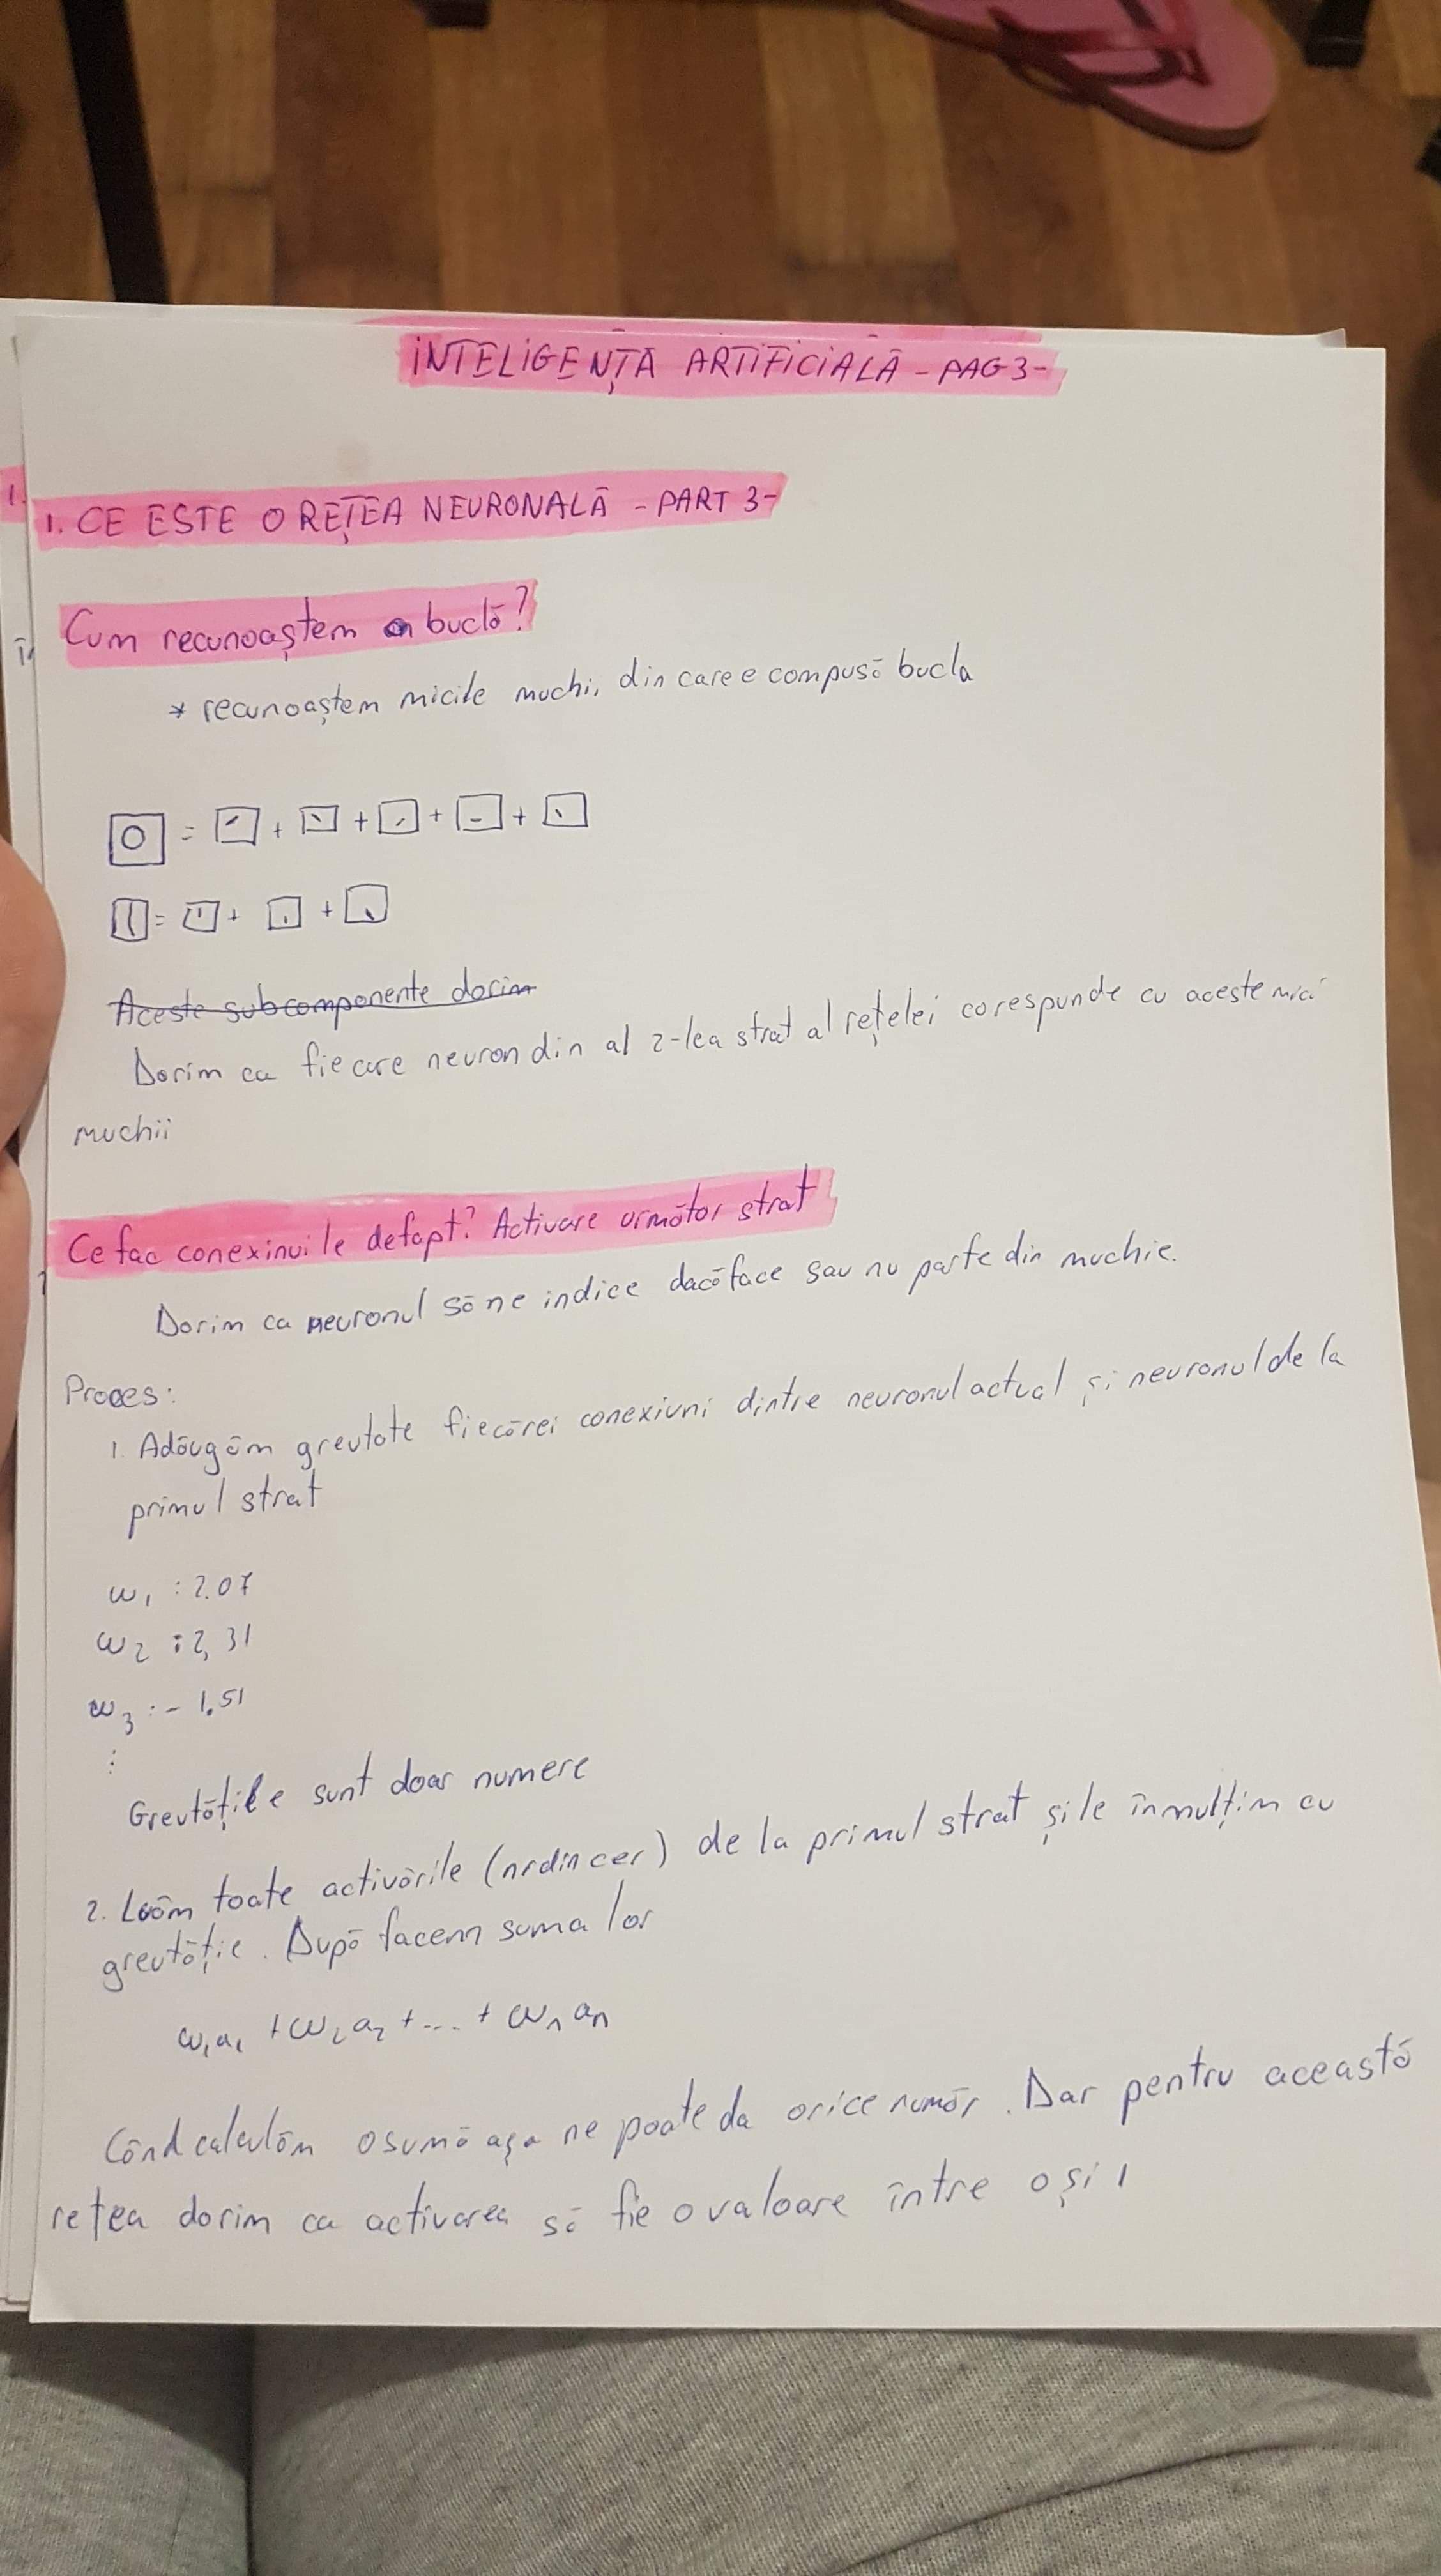 INTELIGENȚĂ ARTIFICIALĂ - PAG 3-
1. CE ESTE O REȚEA NEURONALĂ - PART 3-
Cum recunoaștem o buclă?
* recunoaștem micile muchii din care e compusă bucla
= + + + +
= + +
Aceste subcomponente dorim
Dorim ca fiecare neuron din al 2-lea strat al rețelei corespunde cu aceste mici
muchii
Ce fac conexinuile defapt? Activare următor strat
Dorim ca neuronul să ne indice dacă face sau nu parte din muchie.
Proces:
1. Adăugăm greutate fiecărei conexiuni dintre neuronul actual și neuronul de la
primul strat
w1 : 2.07
w2 : 2,31
w3 : -1.51
⋮
Greutățile sunt doar numere
2. Luăm toate activările (nr din cer) de la primul strat și le înmulțim cu
greutăție. După facem suma lor
w1a1 + w2a2 + ... + wnan
Când calculăm o sumă așa ne poate da orice număr. Dar pentru această
rețea dorim ca activarea să fie o valoare între 0 și 1